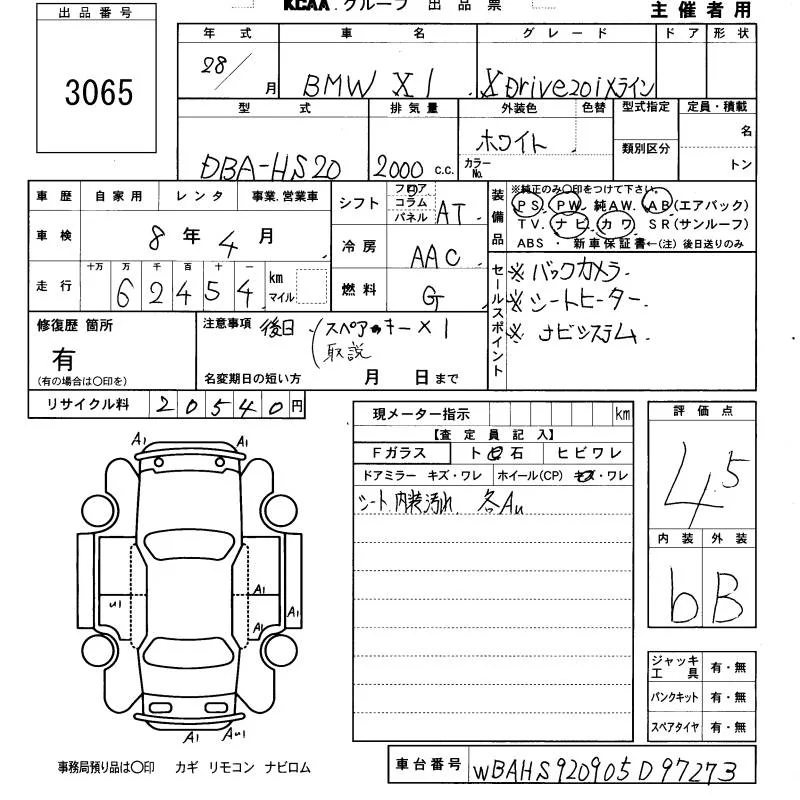 KCAA.グループ 出品票
主催者用
出品番号
3065
年式 車名 グレード ドア 形状
28/ 月 BMW X1 XDrive20iXライン
型式 排気量 外装色 色替 型式指定 定員・積載
DBA-HS20 2000 c.c. ホワイト カラーNo. 類別区分 名 トン
車歴 自家用 レンタ 事業.営業車
車検 8年4月
走行 十万 万 千 百 十 一 km マイル
62454
シフト フロア コラム パネル AT
冷房 AAC
燃料 G
装備品 ※純正のみ〇印をつけて下さい。
PS. PW. 純AW. AB(エアバック)
TV. ナビ カワ SR(サンルーフ)
ABS ・ 新車保証書←(注) 後日送りのみ
セールスポイント
※ バックカメラ.
※ シートヒーター.
※ ナビシステム.
修復歴 箇所
有
(有の場合は〇印を)
注意事項 後日 スペアキー×1
取説
名変期日の短い方 月 日まで
リサイクル料 20540円
現メーター指示 km
【査定員記入】
Fガラス ト石 ヒビワレ
ドアミラー キズ・ワレ ホイール(CP) キズ・ワレ
シート 内装汚れ 各Au
評価点
4.5
内装 外装
b B
A1 A1
u1 A1 A1
A1
A1 Au1
ジャッキ工具 有・無
パンクキット 有・無
スペアタイヤ 有・無
事務局預り品は〇印 カギ リモコン ナビロム
車台番号 WBAHS920905D97273